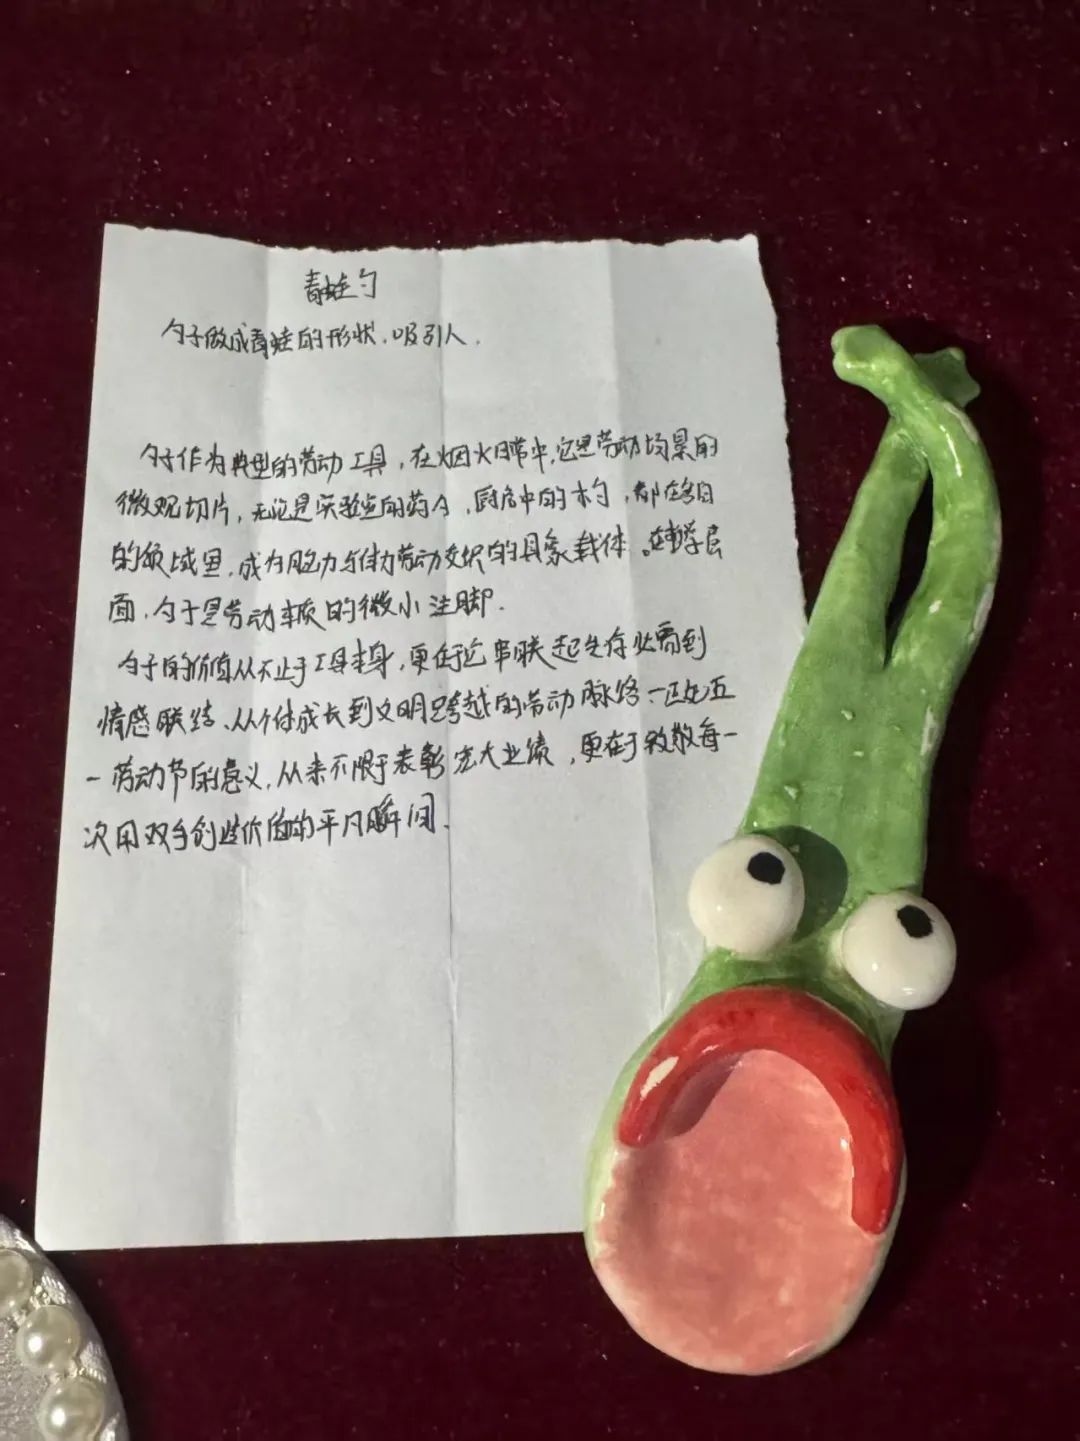 青蛙勺
勺子做成青蛙的形状,吸引人.
勺子作为典型的劳动工具,在烟火日常中,它是劳动场景的
微观切片,无论是实验室的药勺,厨房中的木勺,都在各自
的领域里,成为脑力与体力劳动交织的具象载体。在哲学层
面,勺子是劳动本质的微小注脚.
勺子的价值从不止于工具本身,更在于它串联起生存必需到
情感联结、从个体成长到文明跨越的劳动脉络.
一劳动节的意义,从来不限于表彰宏大业绩,更在于致敬每一
次用双手创造价值的平凡瞬间.